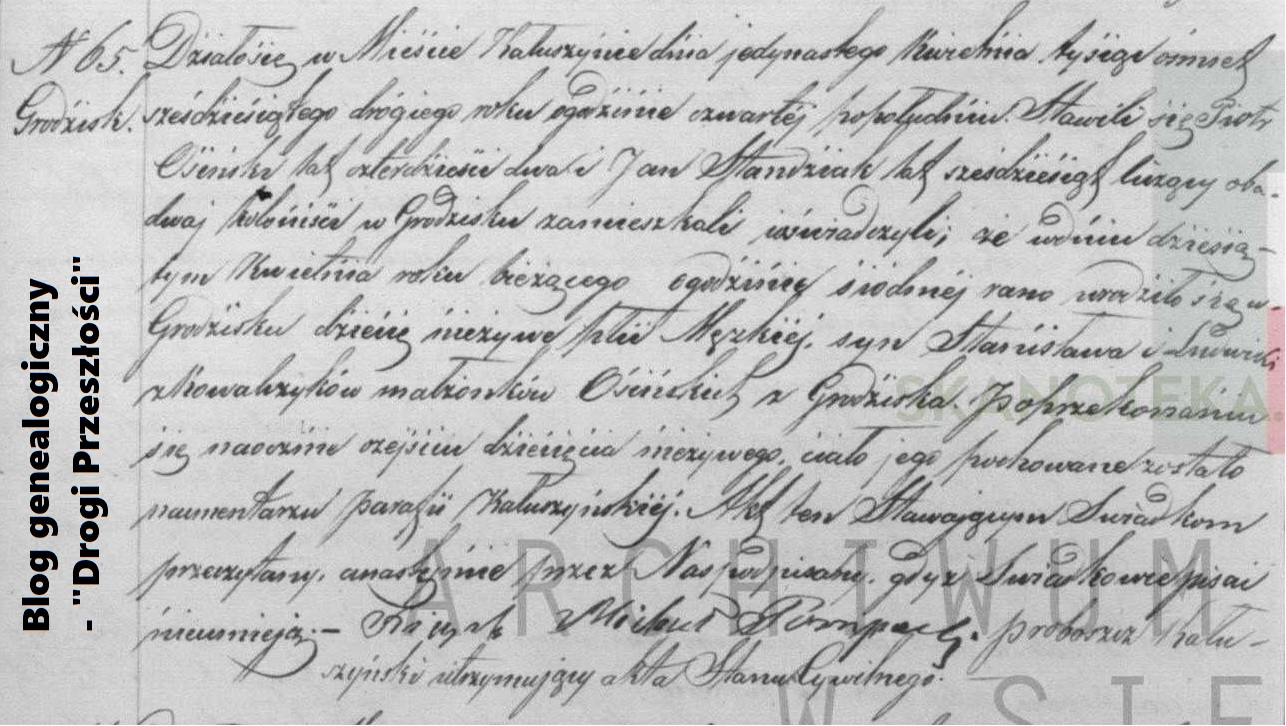 Blog genealogiczny
- "Drogi Przeszłości"
N 65. Działosię w Mieście Kałuszynie dnia jedynastego Kwietnia tysiąc ośmset
Grodzisk. sześdziesiątego drógiego roku ogodzinie czwartéj popołudniu. Stawili się Piotr
Osiński lat czterdzieści dwa i Jan Standziak lat sześdziesiąt liczący oba-
dwaj kolóniści w Grodzisku zamieszkali i oświadczyli; że wdniu dziesią-
tym Kwietnia roku bieżącego ogodzinie siódméj rano urodziło się w-
Grodzisku dziecię nieżywe płci Męzkiéj, syn Stanisława i Ludwiki
z Kowalczyków małżonków Osińskich z Grodziska. Poprzekonaniu
się naocznie ozejściu dziecięcia nieżywego, ciało jego pochowane zostało
nacmentarzu parafii Kałuszyńskiéj. Akt ten Stawającym Swiadkom
przeczytany, anastępnie przez Nas podpisany, gdyż Swiadkowie pisać
nieumieją.- Ksiądz proboszcz Kału-
szyński utrzymujący akta Stanu Cywilnego.
SKANOTEKA
ARCHIWUM
W SIE